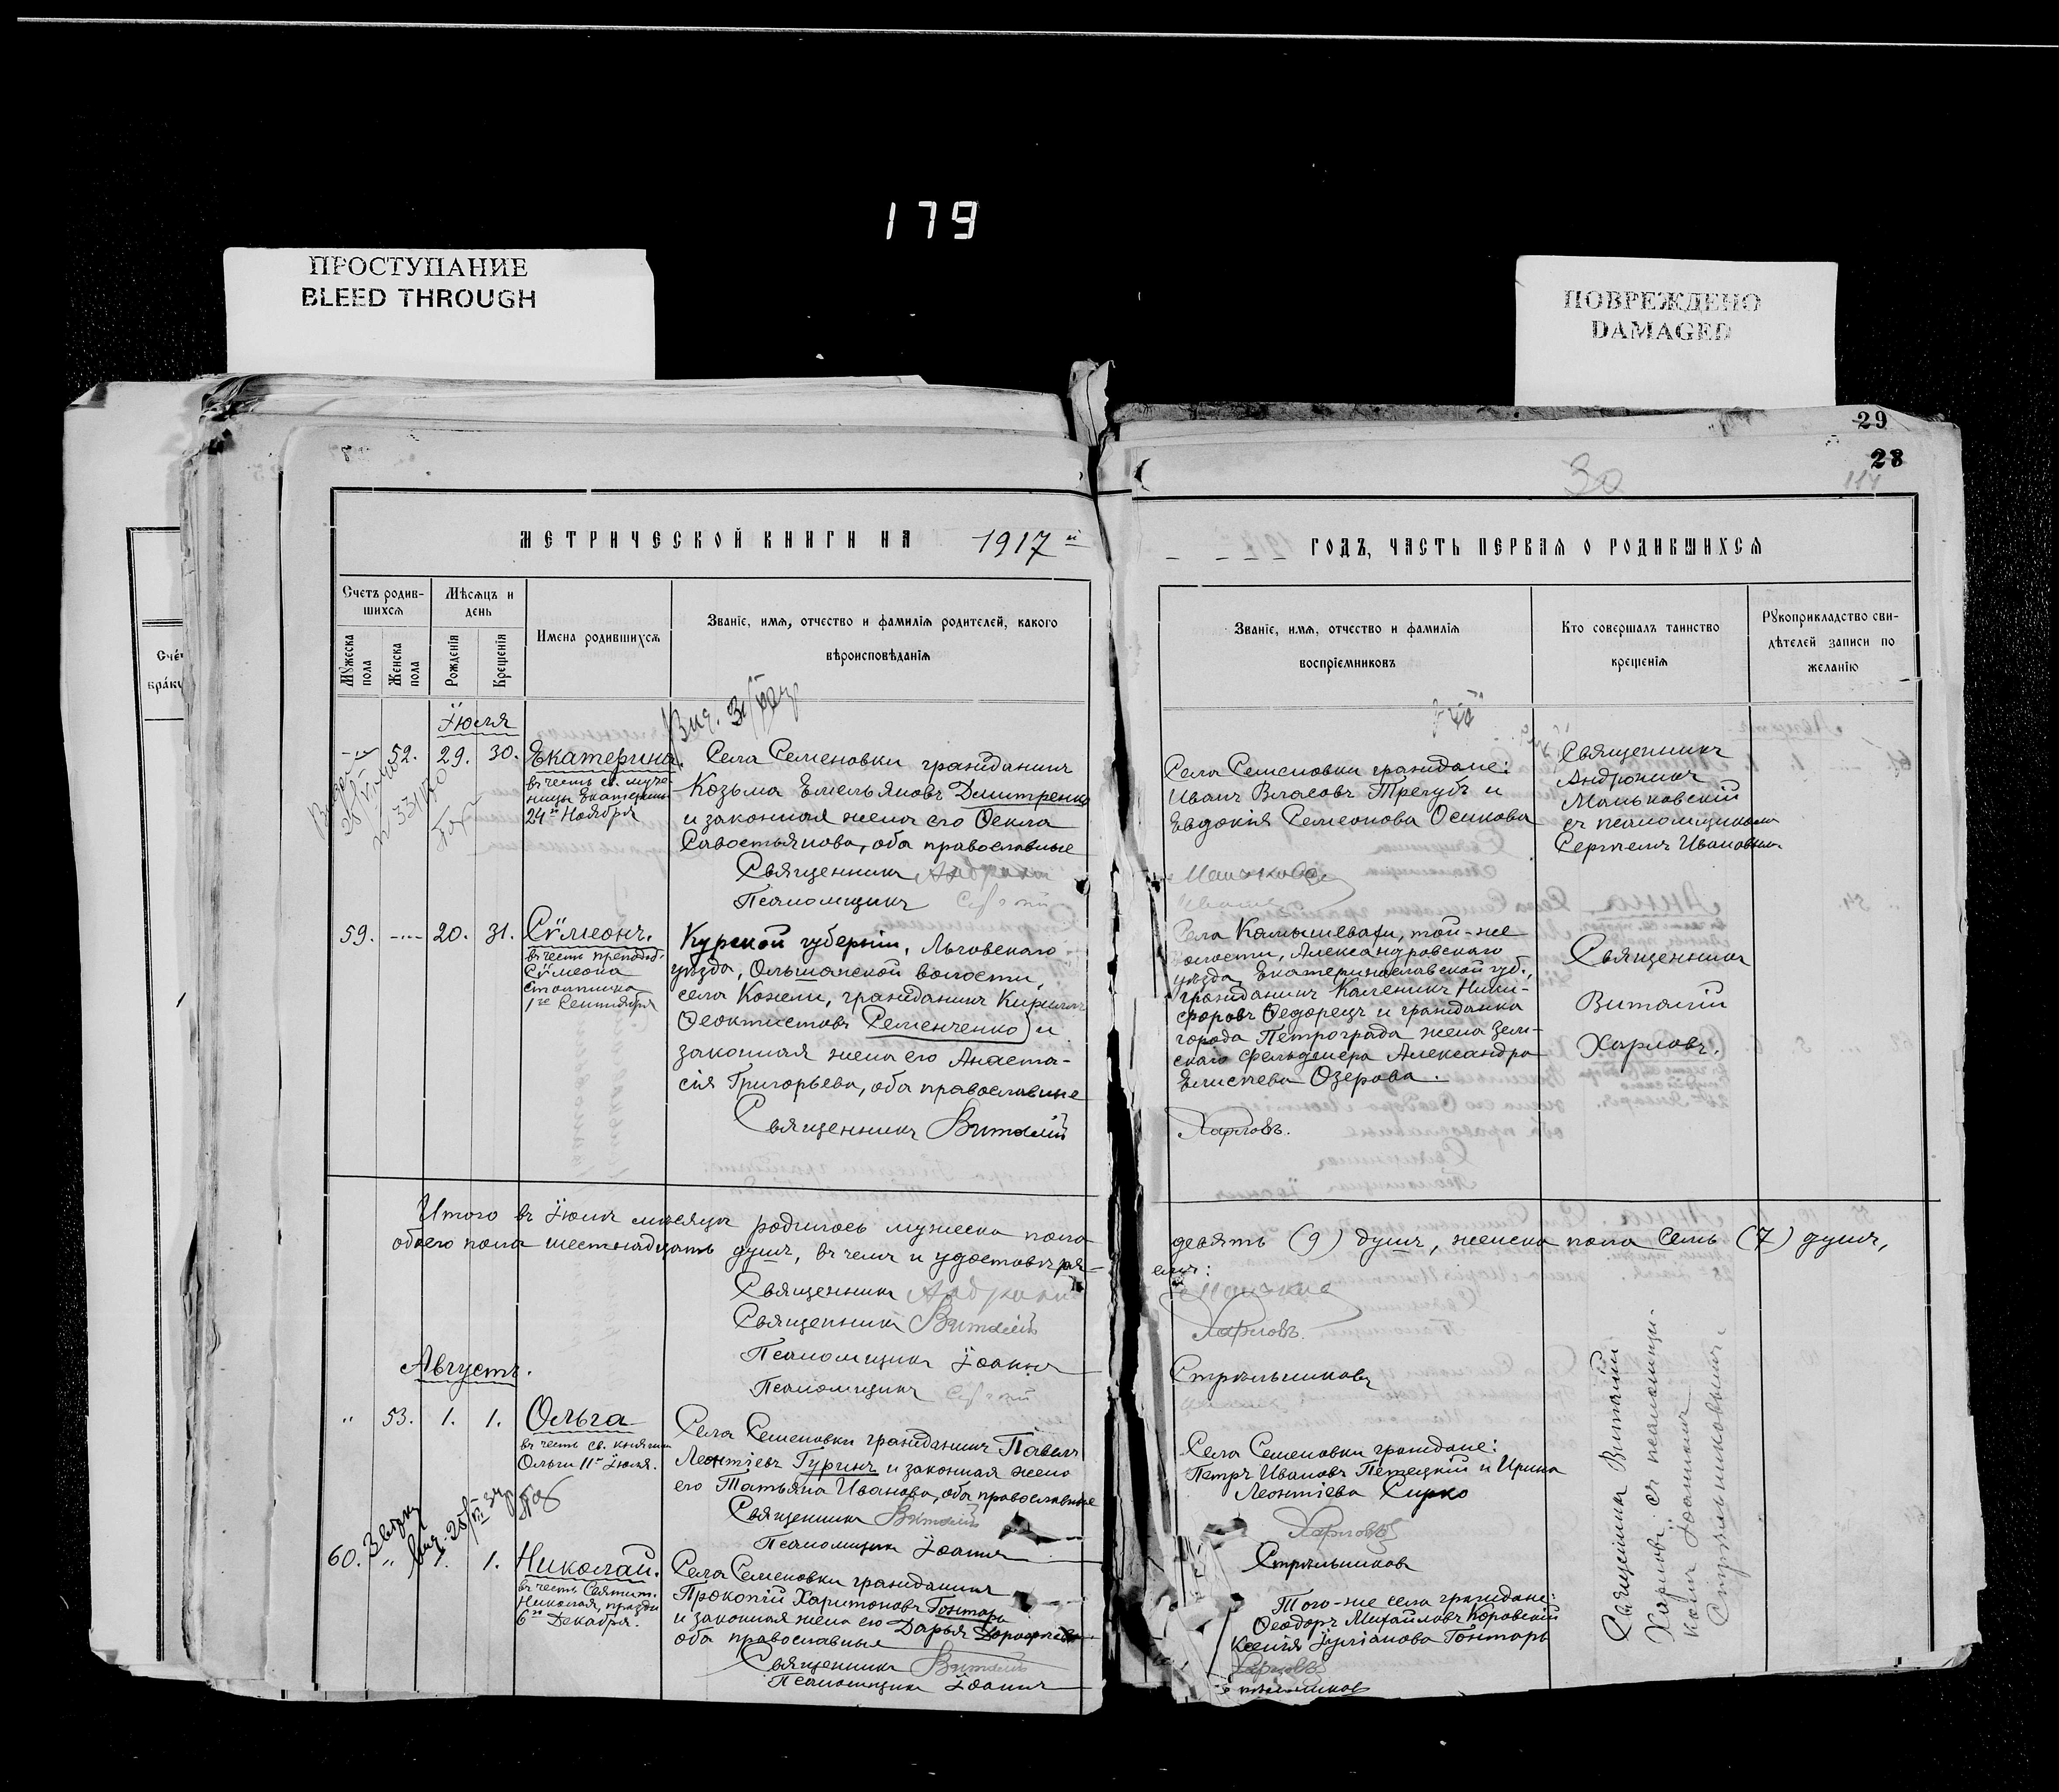 179
ПРОСТУПАНИЕ
BLEED THROUGH
ПОВРЕЖДЕНО
DAMAGED
29
28
30
114
МЕТРИЧЕСКОЙ КНИГИ НА 1917й
ГОДЪ, ЧАСТЬ ПЕРВАЯ О РОДИВШИХСЯ
Счетъ родив-
шихся
Мужеска пола
Женска пола
Мѣсяцъ и
день
Рожденія
Крещенія
Имена родившихся
Званіе, имя, отчество и фамилія родителей, какого
вѣроисповѣданія
Званіе, имя, отчество и фамилія
воспріемниковъ
Кто совершалъ таинство
крещенія
Рукоприкладство сви-
дѣтелей записи по
желанію
Іюля
52. 29. 30. Екатерина.
въ честь св. муче-
ницы Екатерины
24го Ноября
Села Семеновки гражданинъ
Козьма Емельяновъ Дмитренко
и законная жена его Ѳекла
Савостьянова, оба православные
Священникъ
Псаломщикъ
Села Семеновки граждане:
Иванъ Власовъ Трегубъ и
Евдокія Семеонова Осикова
Священникъ
Андроникъ
Маньковскій
съ псаломщикомъ
Сергіемъ
59. 20. 31. Сѵмеонъ.
въ честь преподоб.
Сѵмеона
столпника
1го Сентября
Курской губерніи, Льговскаго
уѣзда, Ольшанской волости,
села Кожли, гражданинъ Кириллъ
Ѳеоктистовъ Семенченко и
законная жена его Анаста-
сія Григорьева, оба православные
Священникъ Виталій
Села Камышевахи, той-же
волости, Александровскаго
уѣзда, Екатеринославской губ.,
гражданинъ Каленикъ Ники-
форовъ Ѳедорецъ и гражданка
города Петрограда жена Зем-
скаго фельдшера Александра
Елисеева Озерова.
Харловъ.
Священникъ
Виталій
Харловъ.
Итого въ Іюлѣ мѣсяцѣ родилось мужеска пола
девять (9) душъ, женска пола семь (7) душъ,
обоего пола шестнадцать душъ, въ чемъ и удостовѣря-
емъ:
Священникъ
Священникъ Виталій
Харловъ.
Псаломщикъ Іоаннъ
Стрѣльниковъ
Псаломщикъ
Августъ.
" 53. 1. 1. Ольга
въ честь св. княгини
Ольги 11го Іюля.
Села Семеновки гражданинъ Павелъ
Леонтіевъ Гуринъ и законная жена
его Татьяна Иванова, оба православные
Священникъ Виталій
Псаломщикъ Іоаннъ
Села Семеновки граждане:
Петръ Ивановъ Петецкій и Ирина
Леонтіева Сирко
Харловъ
Стрѣльниковъ
60. " 1. 1. Николай.
въ честь Святит.
Николая, праздн.
6го Декабря.
Села Семеновки гражданинъ
Прокопій Харитоновъ Гонтарь
и законная жена его Дарья Дорофеева
оба православные
Священникъ Виталій
Псаломщикъ Іоаннъ
Того-же села граждане:
Ѳеодоръ Михайловъ Коровскій
Ксенія Іуліанова Гонтарь
Харловъ
Священникъ Виталій
Харловъ съ псаломщи-
комъ Іоанномъ
Стрѣльниковымъ